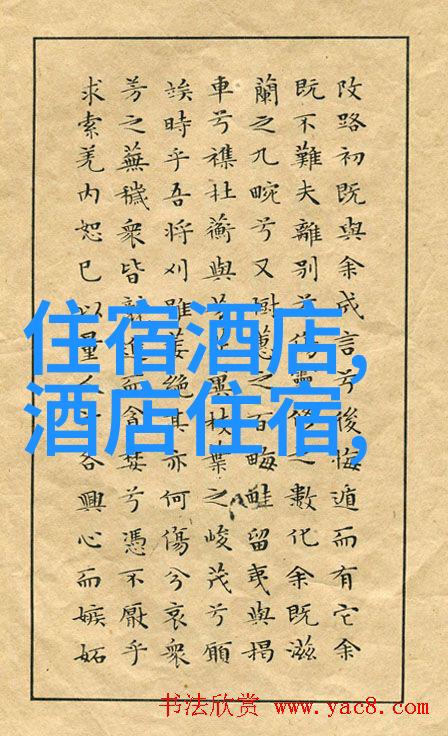 攺路初既與余成言兮後悔遁而有它余
既不難夫離別兮傷靈脩之數化余既滋
蘭之九畹兮又樹蕙之百畮畦留夷與揭
車兮襍杜蘅與芳冀枝葉之峻茂兮願
竢時乎吾將刈雖萎絕其亦何傷兮哀衆
芳之蕪穢衆皆進而貪婪兮憑不厭乎
求索羌內恕已以量人各興心而嫉妬
住宿酒店,
酒店住宿,
书法欣赏 www.yac8.com